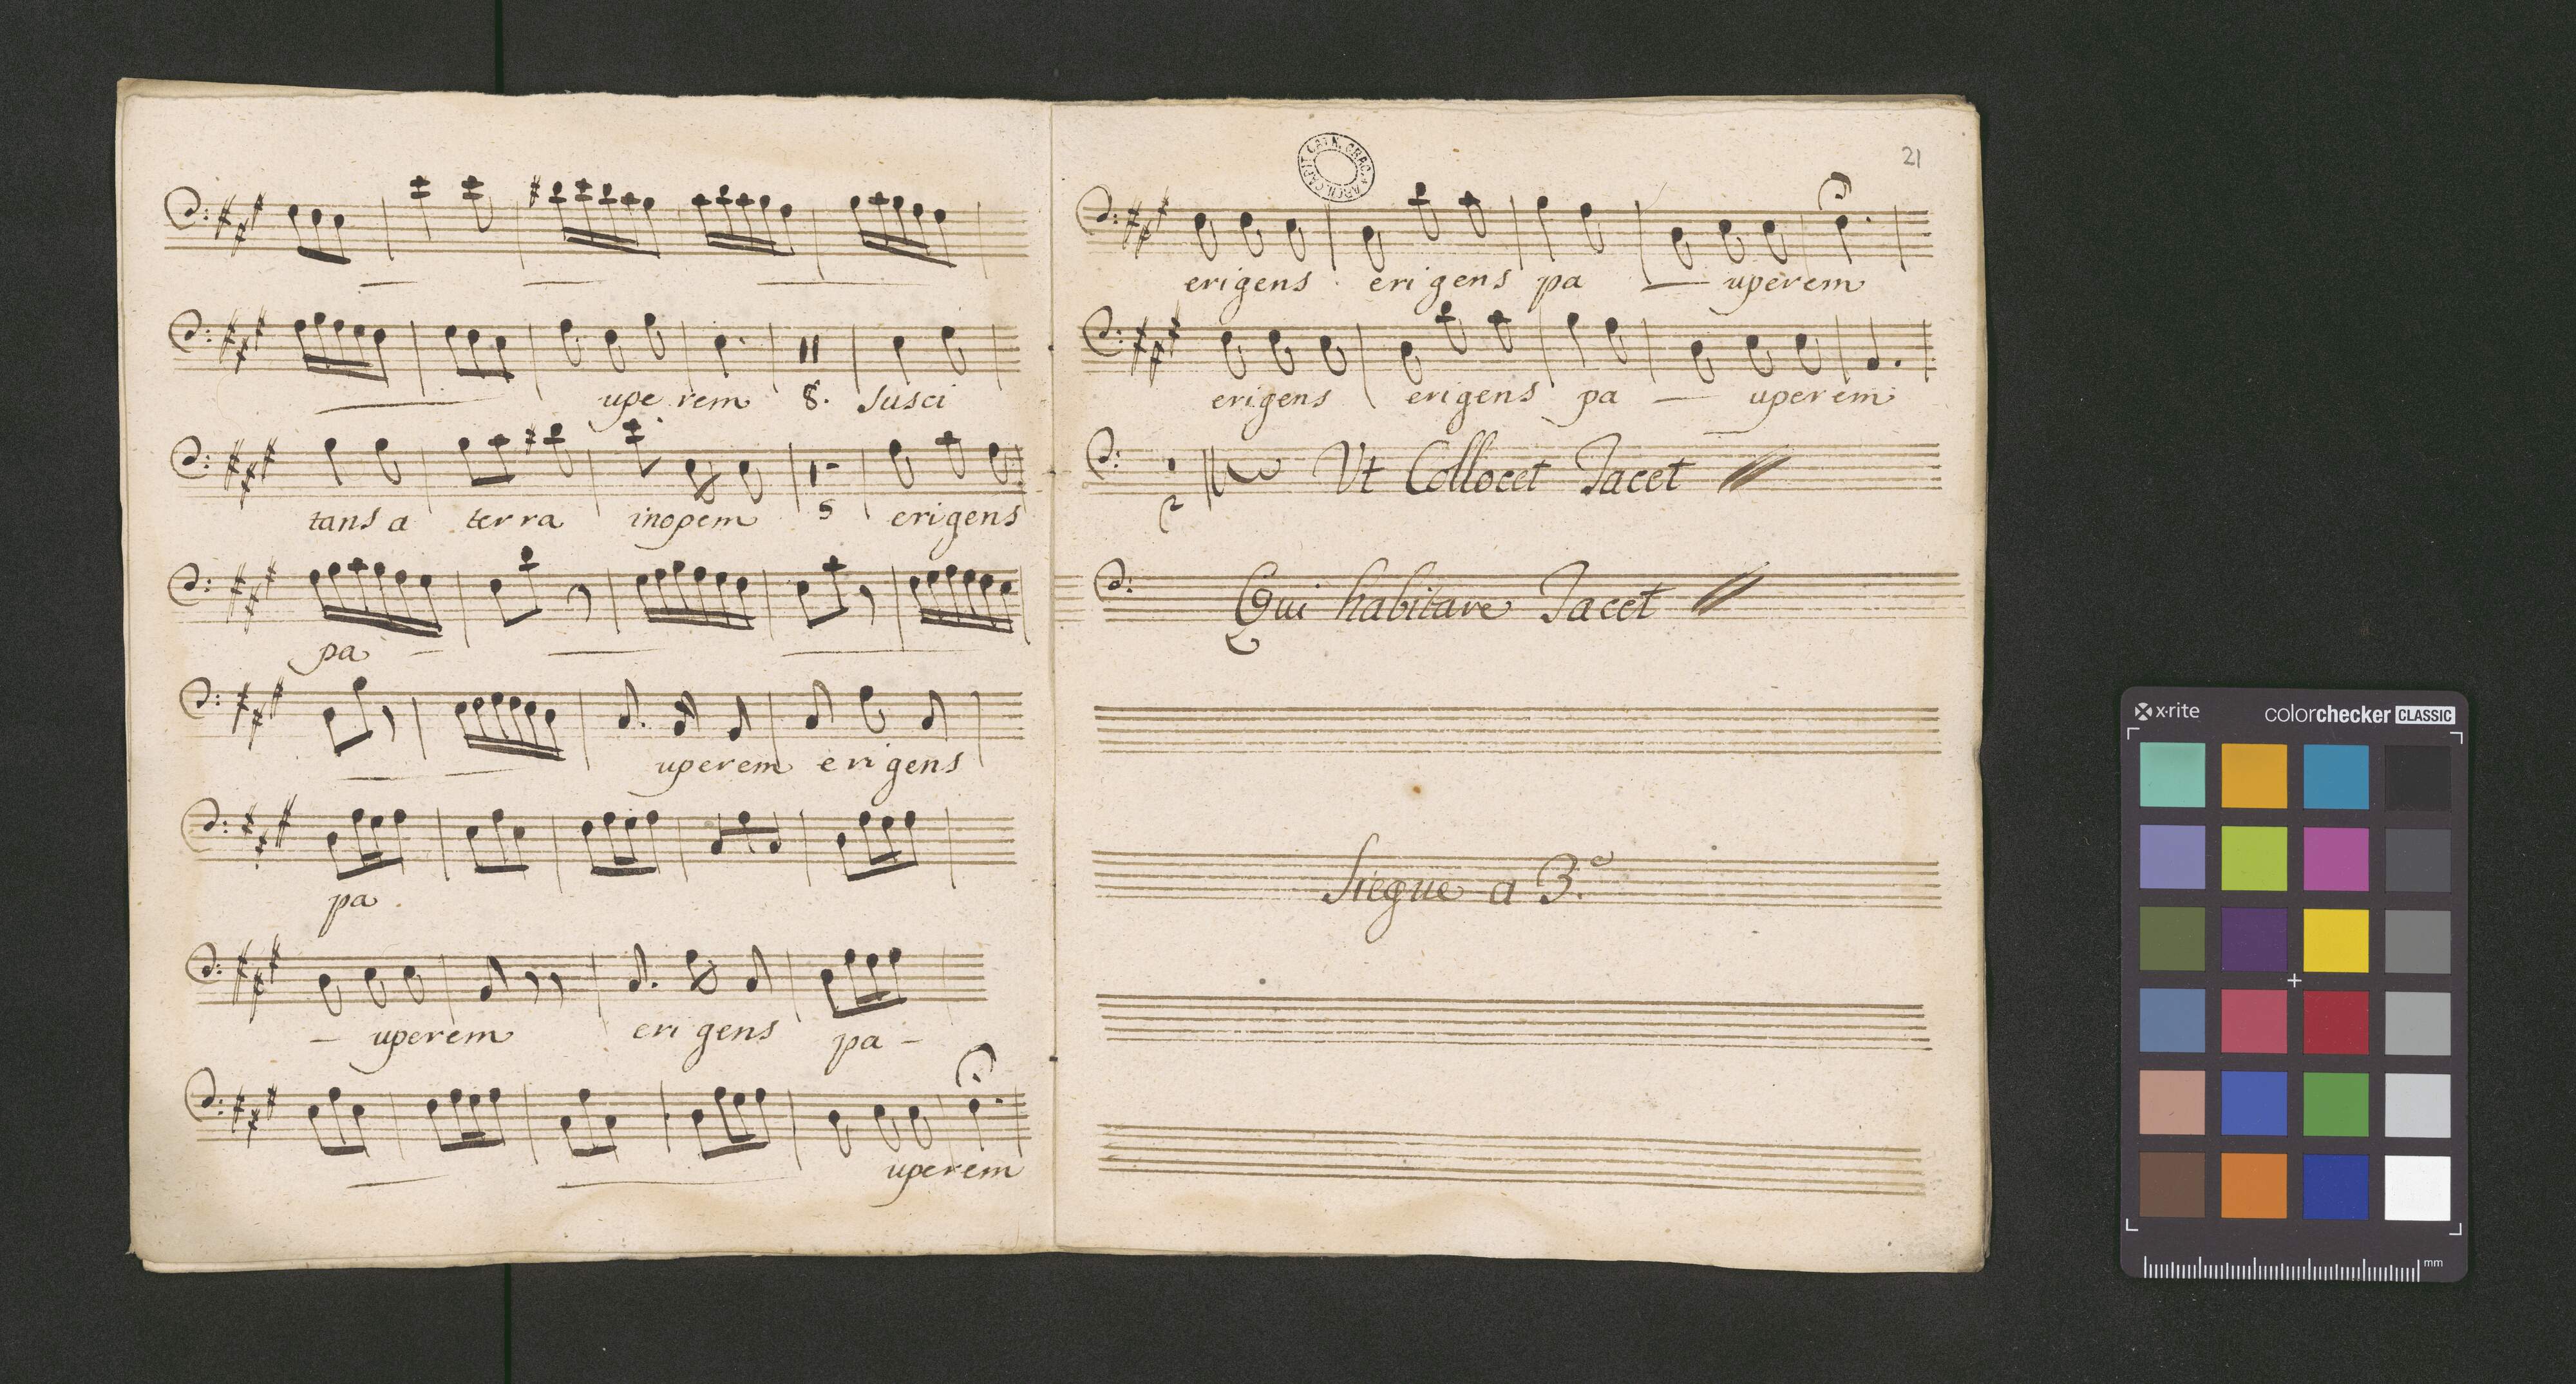 uperem 8. Susci
tans a terra inopem 5 erigens
pa
uperem erigens
pa
uperem erigens pa
uperem
21
erigens erigens pa uperem
erigens erigens pa uperem
2 Vt Collocet Tacet
Qui habitare Tacet
Siegue a 3.e
x-rite
colorchecker CLASSIC
mm